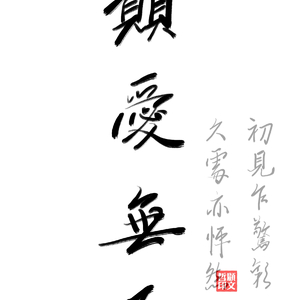 愛無
初見乍驚歡
久處亦怦然